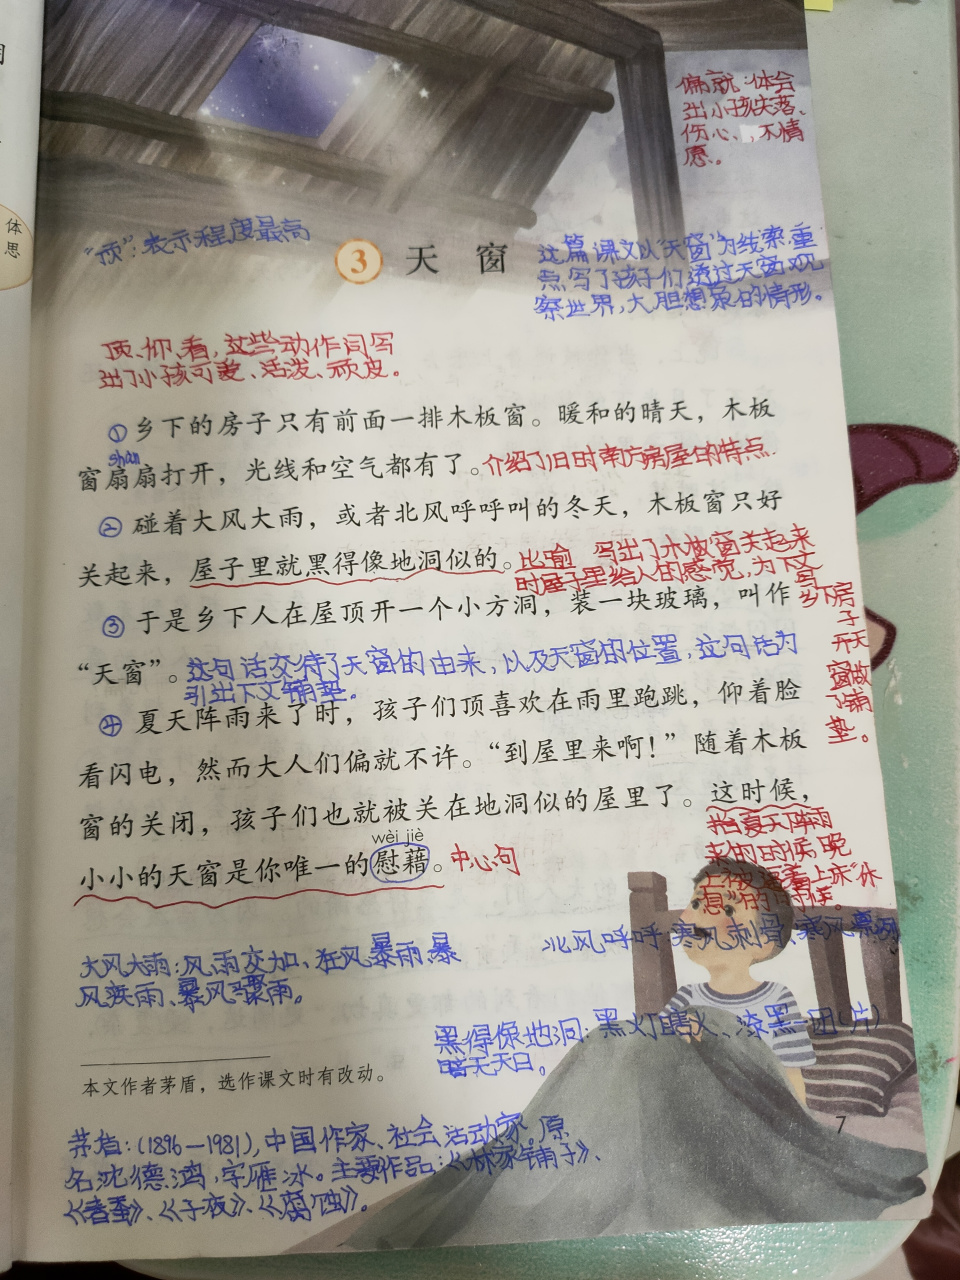 体
思
偏就：体会
出小孩失落、
伤心、不情
愿。
“顶”：表示程度最高
3 天 窗
这篇课文以“天窗”为线索，重
点写了孩子们透过天窗观
察世界，大胆想象的情形。
顶、仰、看，这些动作词写
出了小孩可爱、活泼、顽皮。
①乡下的房子只有前面一排木板窗。暖和的晴天，木板
shān
窗扇扇打开，光线和空气都有了。介绍了旧时南方房屋的特点.
②碰着大风大雨，或者北风呼呼叫的冬天，木板窗只好
关起来，屋子里就黑得像地洞似的。比喻 写出了木板窗关起来
时屋子里给人的感觉，为下文
写
③于是乡下人在屋顶开一个小方洞，装一块玻璃，叫作
乡下房
子
开天
窗做
了铺
垫。
“天窗”。这句话交待了天窗的由来，以及天窗的位置，这句话为
引出下文铺垫。
④夏天阵雨来了时，孩子们顶喜欢在雨里跑跳，仰着脸
看闪电，然而大人们偏就不许。“到屋里来啊！”随着木板
窗的关闭，孩子们也就被关在地洞似的屋里了。这时候，
wèi jiè
小小的天窗是你唯一的慰藉。中心句
指夏天阵雨
来的时候，晚
上被逼着上床“休
息”的时候。
大风大雨：风雨交加、狂风暴雨、暴
风疾雨、暴风骤雨。
北风呼呼：寒风刺骨、寒风凛冽
黑得像地洞：黑灯瞎火、漆黑一团（片）
暗无天日。
本文作者茅盾，选作课文时有改动。
茅盾：（1896—1981），中国作家、社会活动家。原
名沈德鸿，字雁冰。主要作品：《林家铺子》、
《春蚕》、《子夜》、《腐蚀》。
7